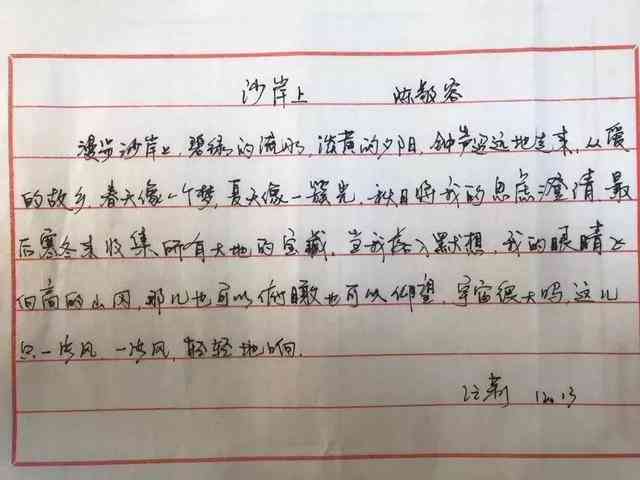 沙岸上 陈敬容
漫步沙岸上，碧绿的流水，淡黄的夕阳，钟声远远地走来，从爱
的故乡，春天像一个梦，夏天像一簇光，秋日将我的思虑澄清，最
后寒冬来收集所有大地的宝藏，当我落入默想，我的眼睛飞
向高的山冈，那儿也可以俯瞰也可以仰望，宇宙很大吗，这儿
只一阵风，一阵风，轻轻地响。